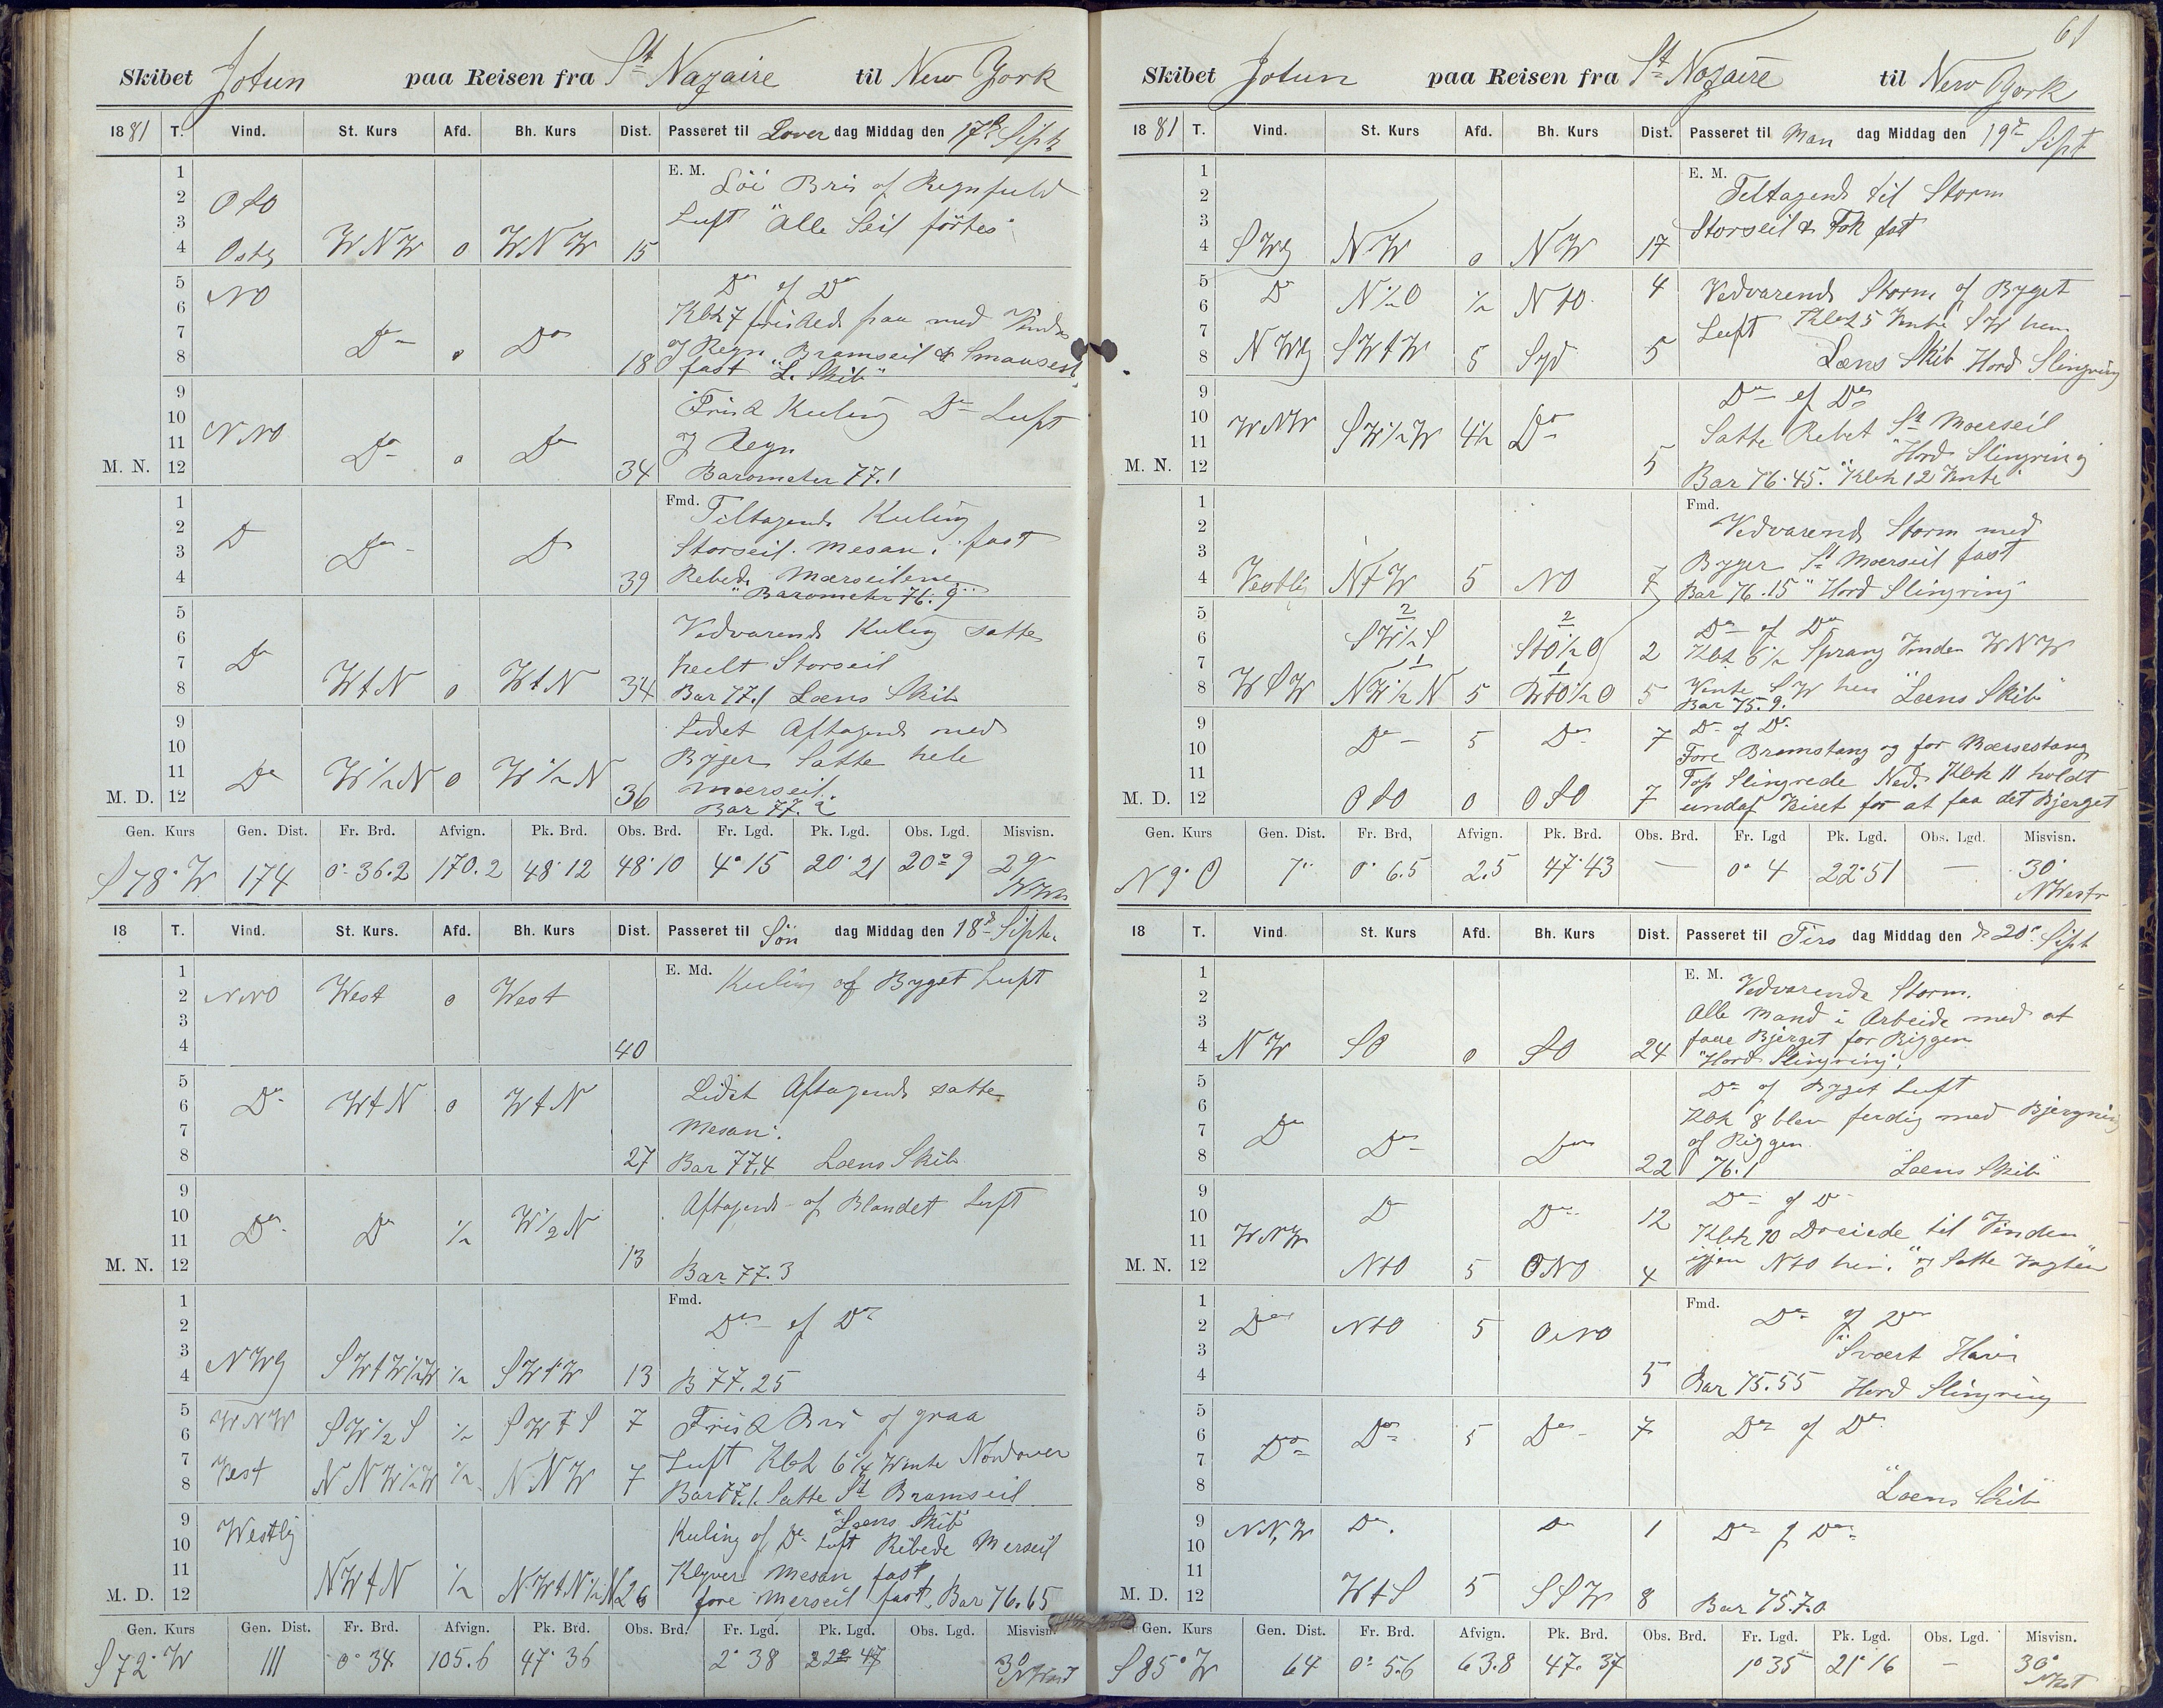 61
Skibet Jotun paa Reisen fra St Nazaire til New York
1881 T. Vind. St. Kurs Afd. Bh. Kurs Dist. Passeret til Löver dag Middag den 17de Sept
1 E. M. Löi Bris og Regnfuld
2 OtO
3 Luft "Alle Seil förtes"
4 Ostlg WNW 0 WNW 15
5 NO Do og Do
6 Klok 7 friskede paa med Vinden
7 Do 0 Do og Regn Bramseil &
8 18 fast "L. Skib"
9 Frisk Kuling Do Luft
10
11 NNO Do 0 Do og Regn
M. N. 12 34 Barometer 77.1
1 Fmd. Tiltagende Kuling
2 Do Do Do Storseil. Mesan. fast
3
4 39 Rebede Mærseilene
"Barometer 76.9"
5 Vedvarende Kuling satte
6
7 Do heelt Storseil
8 WtN 0 WtN 34 Bar 77.1 Læns Skib
9 Lidet Aftagende med
10 Byger Satte hele
11 Do W½N 0 W½N Mærseil.
M. D. 12 36 Bar 77.2
Gen. Kurs Gen. Dist. Fr. Brd. Afvign. Pk. Brd. Obs. Brd. Fr. Lgd. Pk. Lgd. Obs. Lgd. Misvisn.
S78°W 174 0°36.2 170.2 48°12 48°10 4°15 20°21 20°9 29
18 T. Vind. St. Kurs. Afd. Bh. Kurs Dist. Passeret til Sön dag Middag den 18de Sept.
1 E. Md. Kuling og Byget Luft
2 NNO West 0 West
3
4 40
5 Lidet Aftagende satte
6 Do WtN 0 WtN
7 Mesan.
8 27 Bar 77.4 Læns Skib
9 Aftagende og Blandet Luft
10
11 Do Do ½ W½N
M. N. 12 13 Bar 77.3
1 Fmd. Do og Do
2
3
4 NWlg SWtW½W ½ SWtW 13 B 77.25
5 WNW SW½S ½ SWtS 7 Frisk Bris og graa
6
7 Luft Klok 6¼ Vente Nordover
8 Vest NNW½W ½ NNW 7 Bar 77.1. Satte St Bramseil
"Læns Skib"
9 Westlig Kuling og Do Luft Rebede Merseil
10
11 Klyver Mesan fast
M. D. 12 NWtN ½ NWtN½N 26 fore Merseil fast. Bar 76.65
Gen. Kurs Gen. Dist. Fr. Brd. Afvign. Pk. Brd. Obs. Brd. Fr. Lgd. Pk. Lgd. Obs. Lgd. Misvisn.
S72°W 111 0°34 105.6 47°36 2°38 22°47 30
Skibet Jotun paa Reisen fra St Nazaire til New York
1881 T. Vind. St. Kurs Afd. Bh. Kurs Dist. Passeret til Man dag Middag den 19de Sept
1 E. M. Teltagende til Storm
2
3 Storseil & Fok fast
4 SWlg NW 0 NW 17
5 Do N½O ½ NtO 4 Vedvarende Storm og Byget
6 Luft Klok 5 Vente SW hen
7
8 NWlg SWtW 5 Syd 5 Læns Skib Hord Slingring
9 Do og Do
10 WNW SW½W 4½ Do Satte Rebet St Moerseil
11 "Hord Slingring
M. N. 12 5 Bar 76.45. "Klok 12 Vente"
1 Fmd. Vedvarende Storm med
2
3 Byger St Moerseil fast
4 Vestlig NtW 5 NO 7 Bar 76.15 "Hord Slingring
5 2 2 Do og Do
6 SW½S StO½O 2 Klok 6½ Sprang Vinden WNW
7 1 1 Vente SW hen "Læns Skib"
8 WSW NW½N 5 5 Bar 75.9.
9 Do 5 Do 7 Do og Do
10 Fore Bramstang og for Mærsestang
11 Top Slingrede Ned. Klok 11 holdt
M. D. 12 OtO 0 OtO 7 undaf Veiret for at faa det Bjerget
Gen. Kurs Gen. Dist. Fr. Brd, Afvign. Pk. Brd. Obs. Brd. Fr. Lgd Pk. Lgd. Obs. Lgd. Misvisn.
N9°O 7 0°6.5 2.5 47°43 — 0°4 22°51 — 30° NWestr
18 T. Vind. St. Kurs Afd. Bh. Kurs Dist. Passeret til Tirs dag Middag den 20de Sept
1 E. M. Vedvarende Storm.
2 Alle Mand i Arbeide med at
3 faae Bjerget for Riggen
4 NW SO 0 SO 24 "Hord Slingring".
5 Do og Byget Luft
6 Klok 8 blev ferdig med Bjergning
7 Do Do Do af Riggen
8 22 76.1 "Læns Skib"
9 Do Do og Do
10 Do 12 Klok 10 Dreiede til Vinden
11 WNW
M. N. 12 NtO 5 ONO 4 igjen NtO hen. "og Satte Vagten"
1 Fmd. Do og Do
2 Do NtO 5 ONO
3 "Svært Hav
4 5 Bar 75.55 Hord Slingring
5
6 Do Do 5 Do 7 Do og Do
7
8 "Læns Skib"
9 NNW Do. Do 1 Do og Do
10
11
M. D. 12 WtS 5 SSW 8 Bar 75.70
Gen. Kurs Gen. Dist. Fr. Brd. Afvign. Pk. Brd. Obs. Brd. Fr. Lgd. Pk. Lgd. Obs. Lgd. Misvisn.
S85°W 64 0°5.6 63.8 47°37 1°35 21°16 — 30°